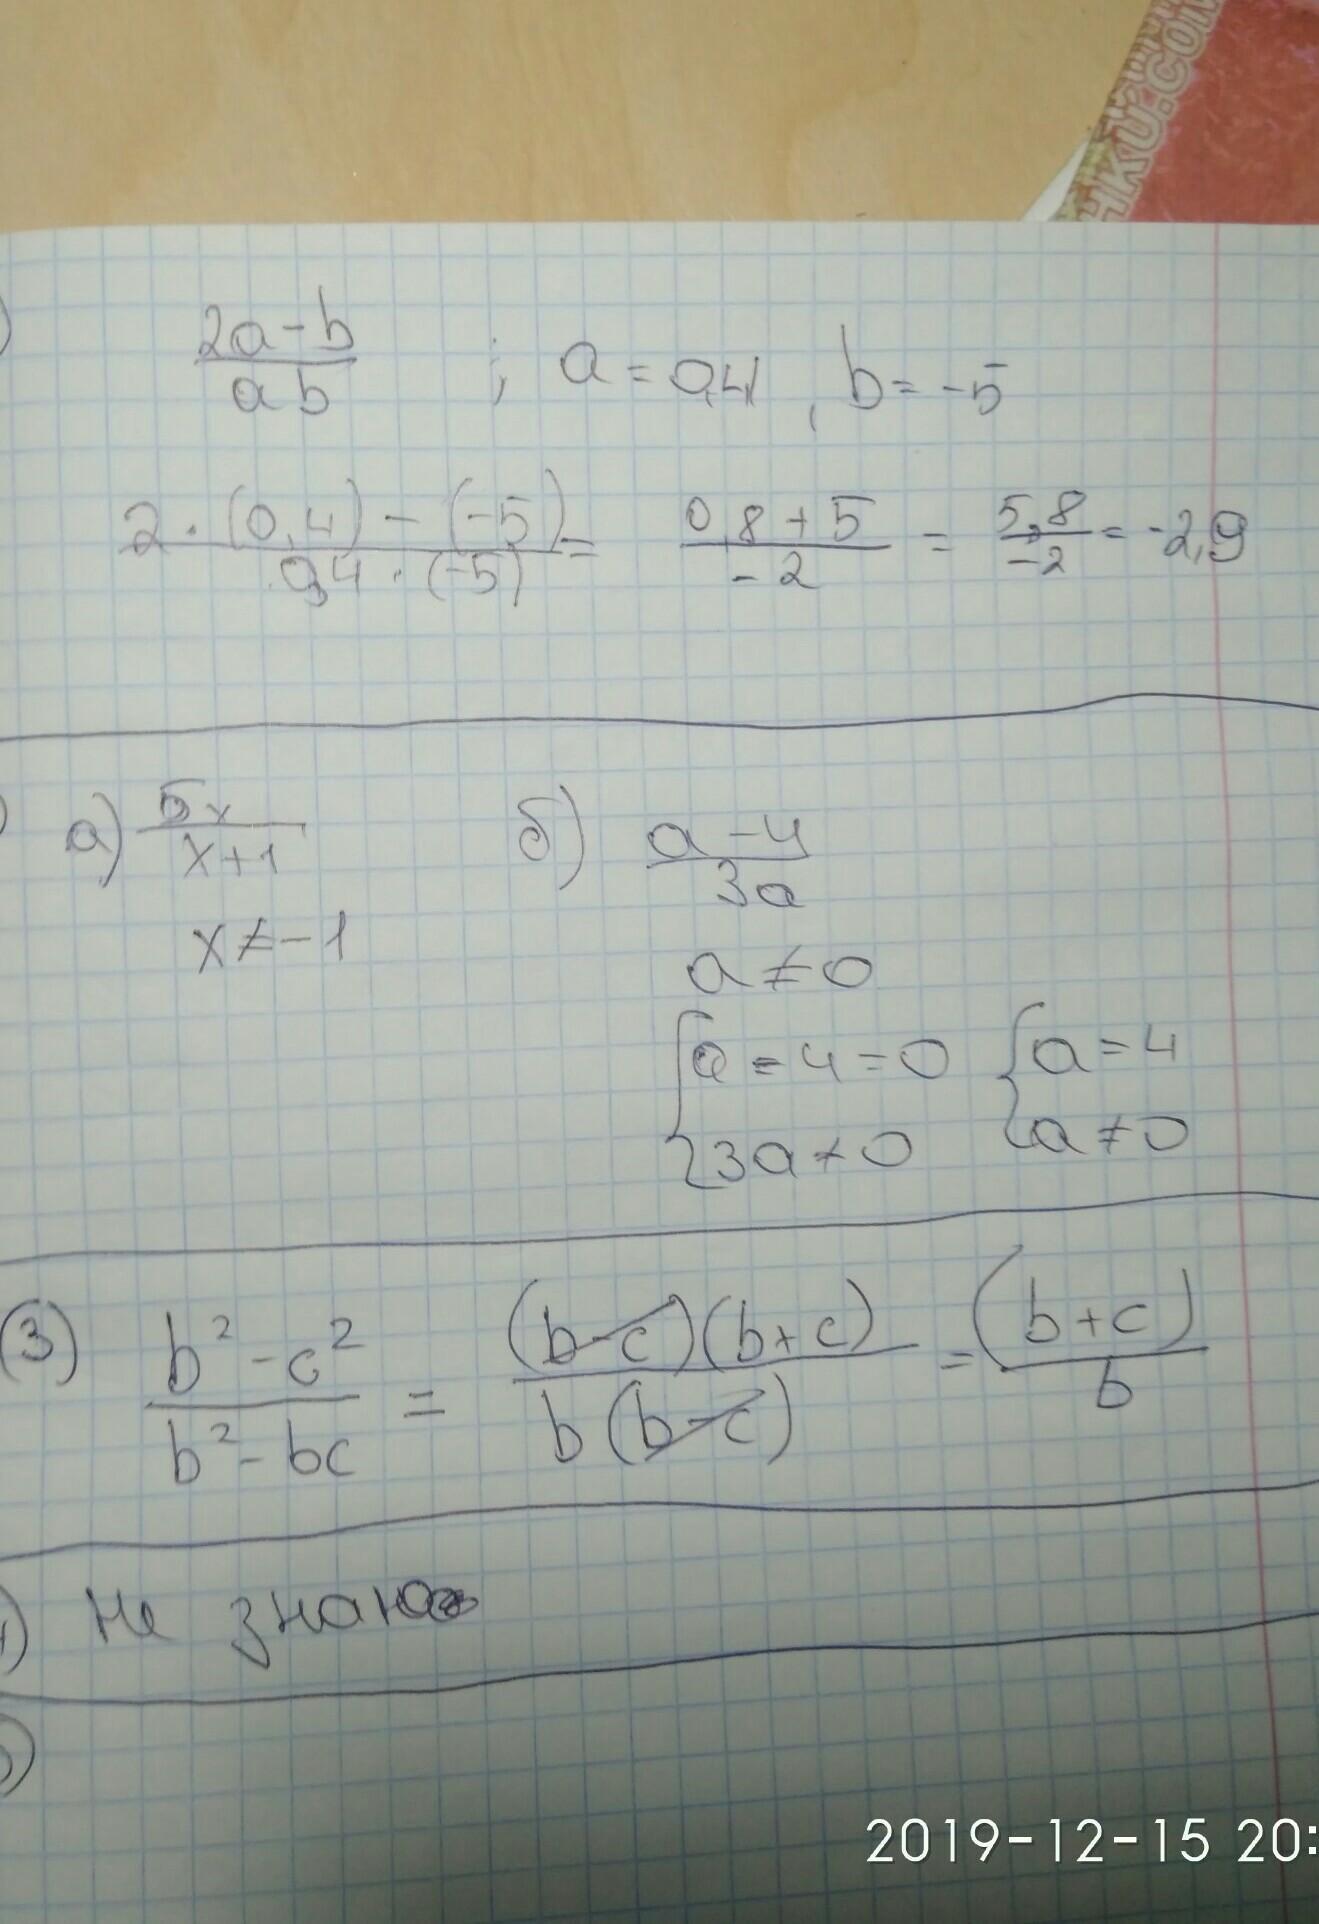 НКU.COM
)
2a-b/ab ; a = 0,4 , b = -5
2·(0,4)-(-5)/0,4·(-5) = 0,8+5/-2 = 5,8/-2 = -2,9
) а) 5x/x+1 б) a-4/3a
x≠-1 a≠0
{a-4=0 {a=4
3a≠0 a≠0
(3) b²-c²/b²-bc = (b-c)(b+c)/b(b-c) = (b+c)/b
) не знаю
)
2019-12-15 20: